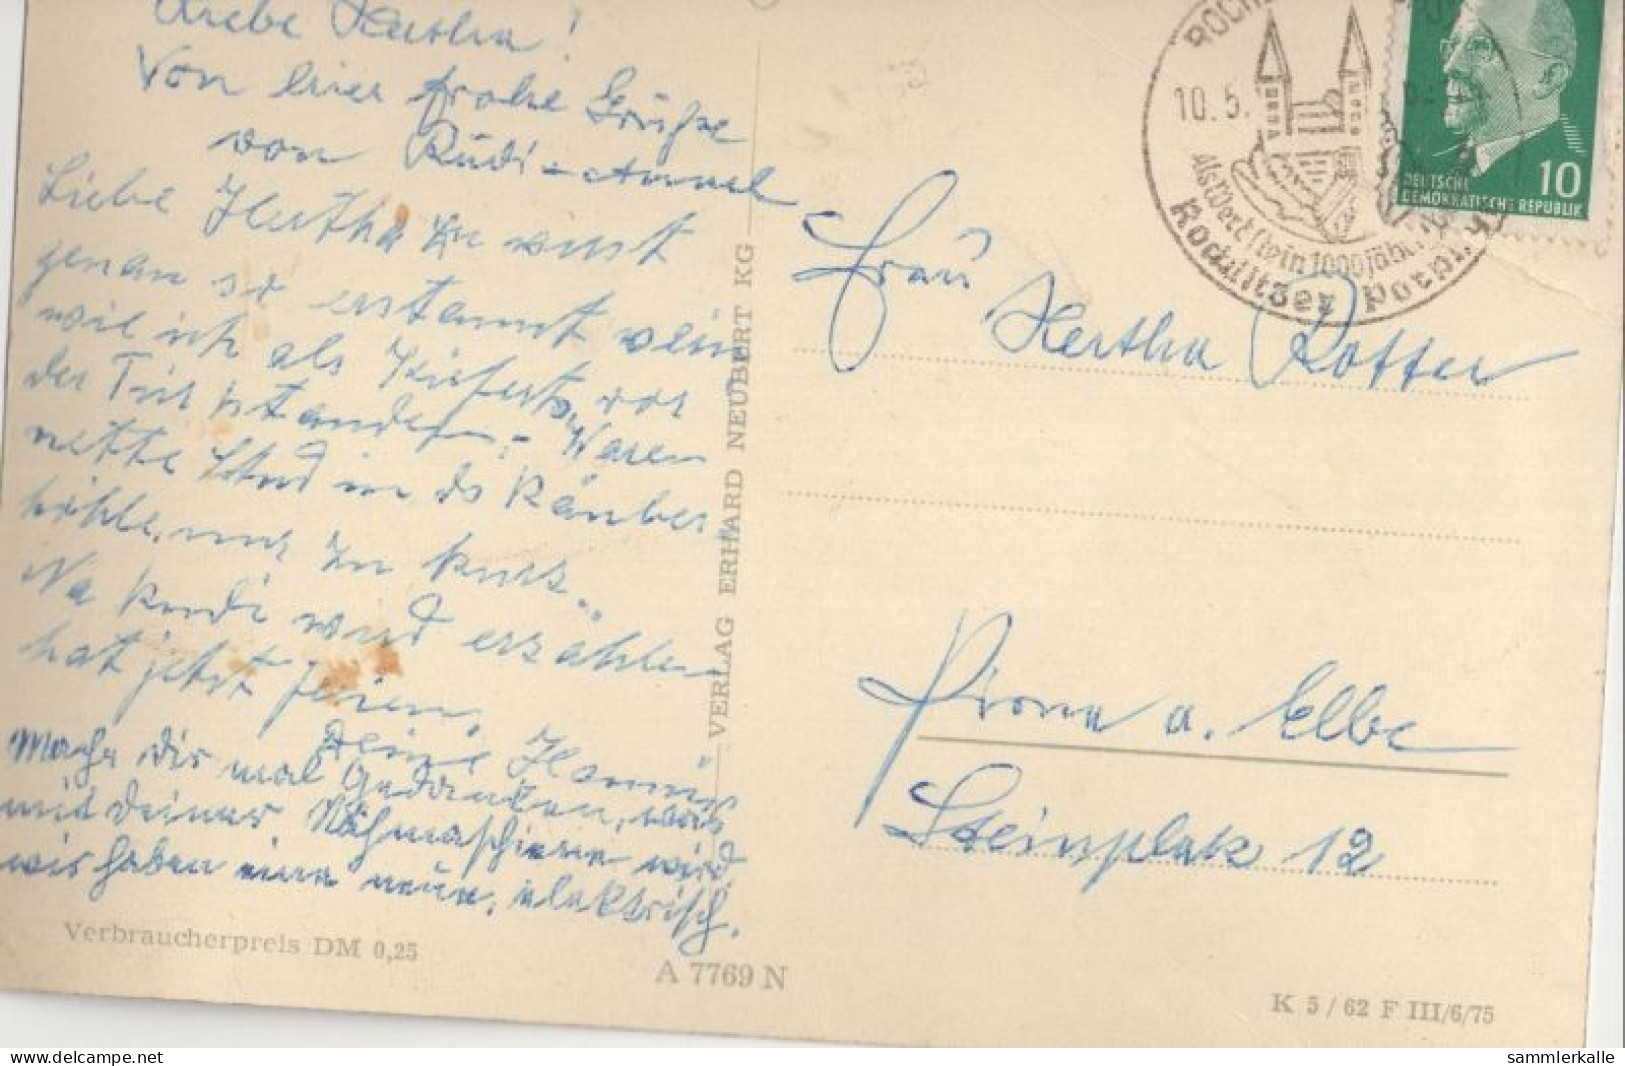 Liebe Hertha!
Von hier frohe Grüße
von Rudi + Annel
Liebe Hertha Du wirst
genau so erstaunt sein
wie ich als
der Tür standen. Waren
nette Stnd in der Räuber
höhle, nur zu kurz..
Na wird erzählen
hat jetzt Ferien.
Deine Hanni
Mache dir mal Gedanken, was
mit deiner Nähmaschiene wird,
wir haben eine neue, elektrisch.
Verbraucherpreis DM 0,25
A 7769 N
VERLAG ERHARD NEUBERT KG
10.5.
Als Werkstein 1000jähr
Rochlitzer Porphyr
10
DEUTSCHE
DEMOKRATISCHE REPUBLIK
Frau
Hertha Rotter
Pirna a. Elbe
Steinplatz 12
K 5/62 F III/6/75
www.delcampe.net
sammlerkalle